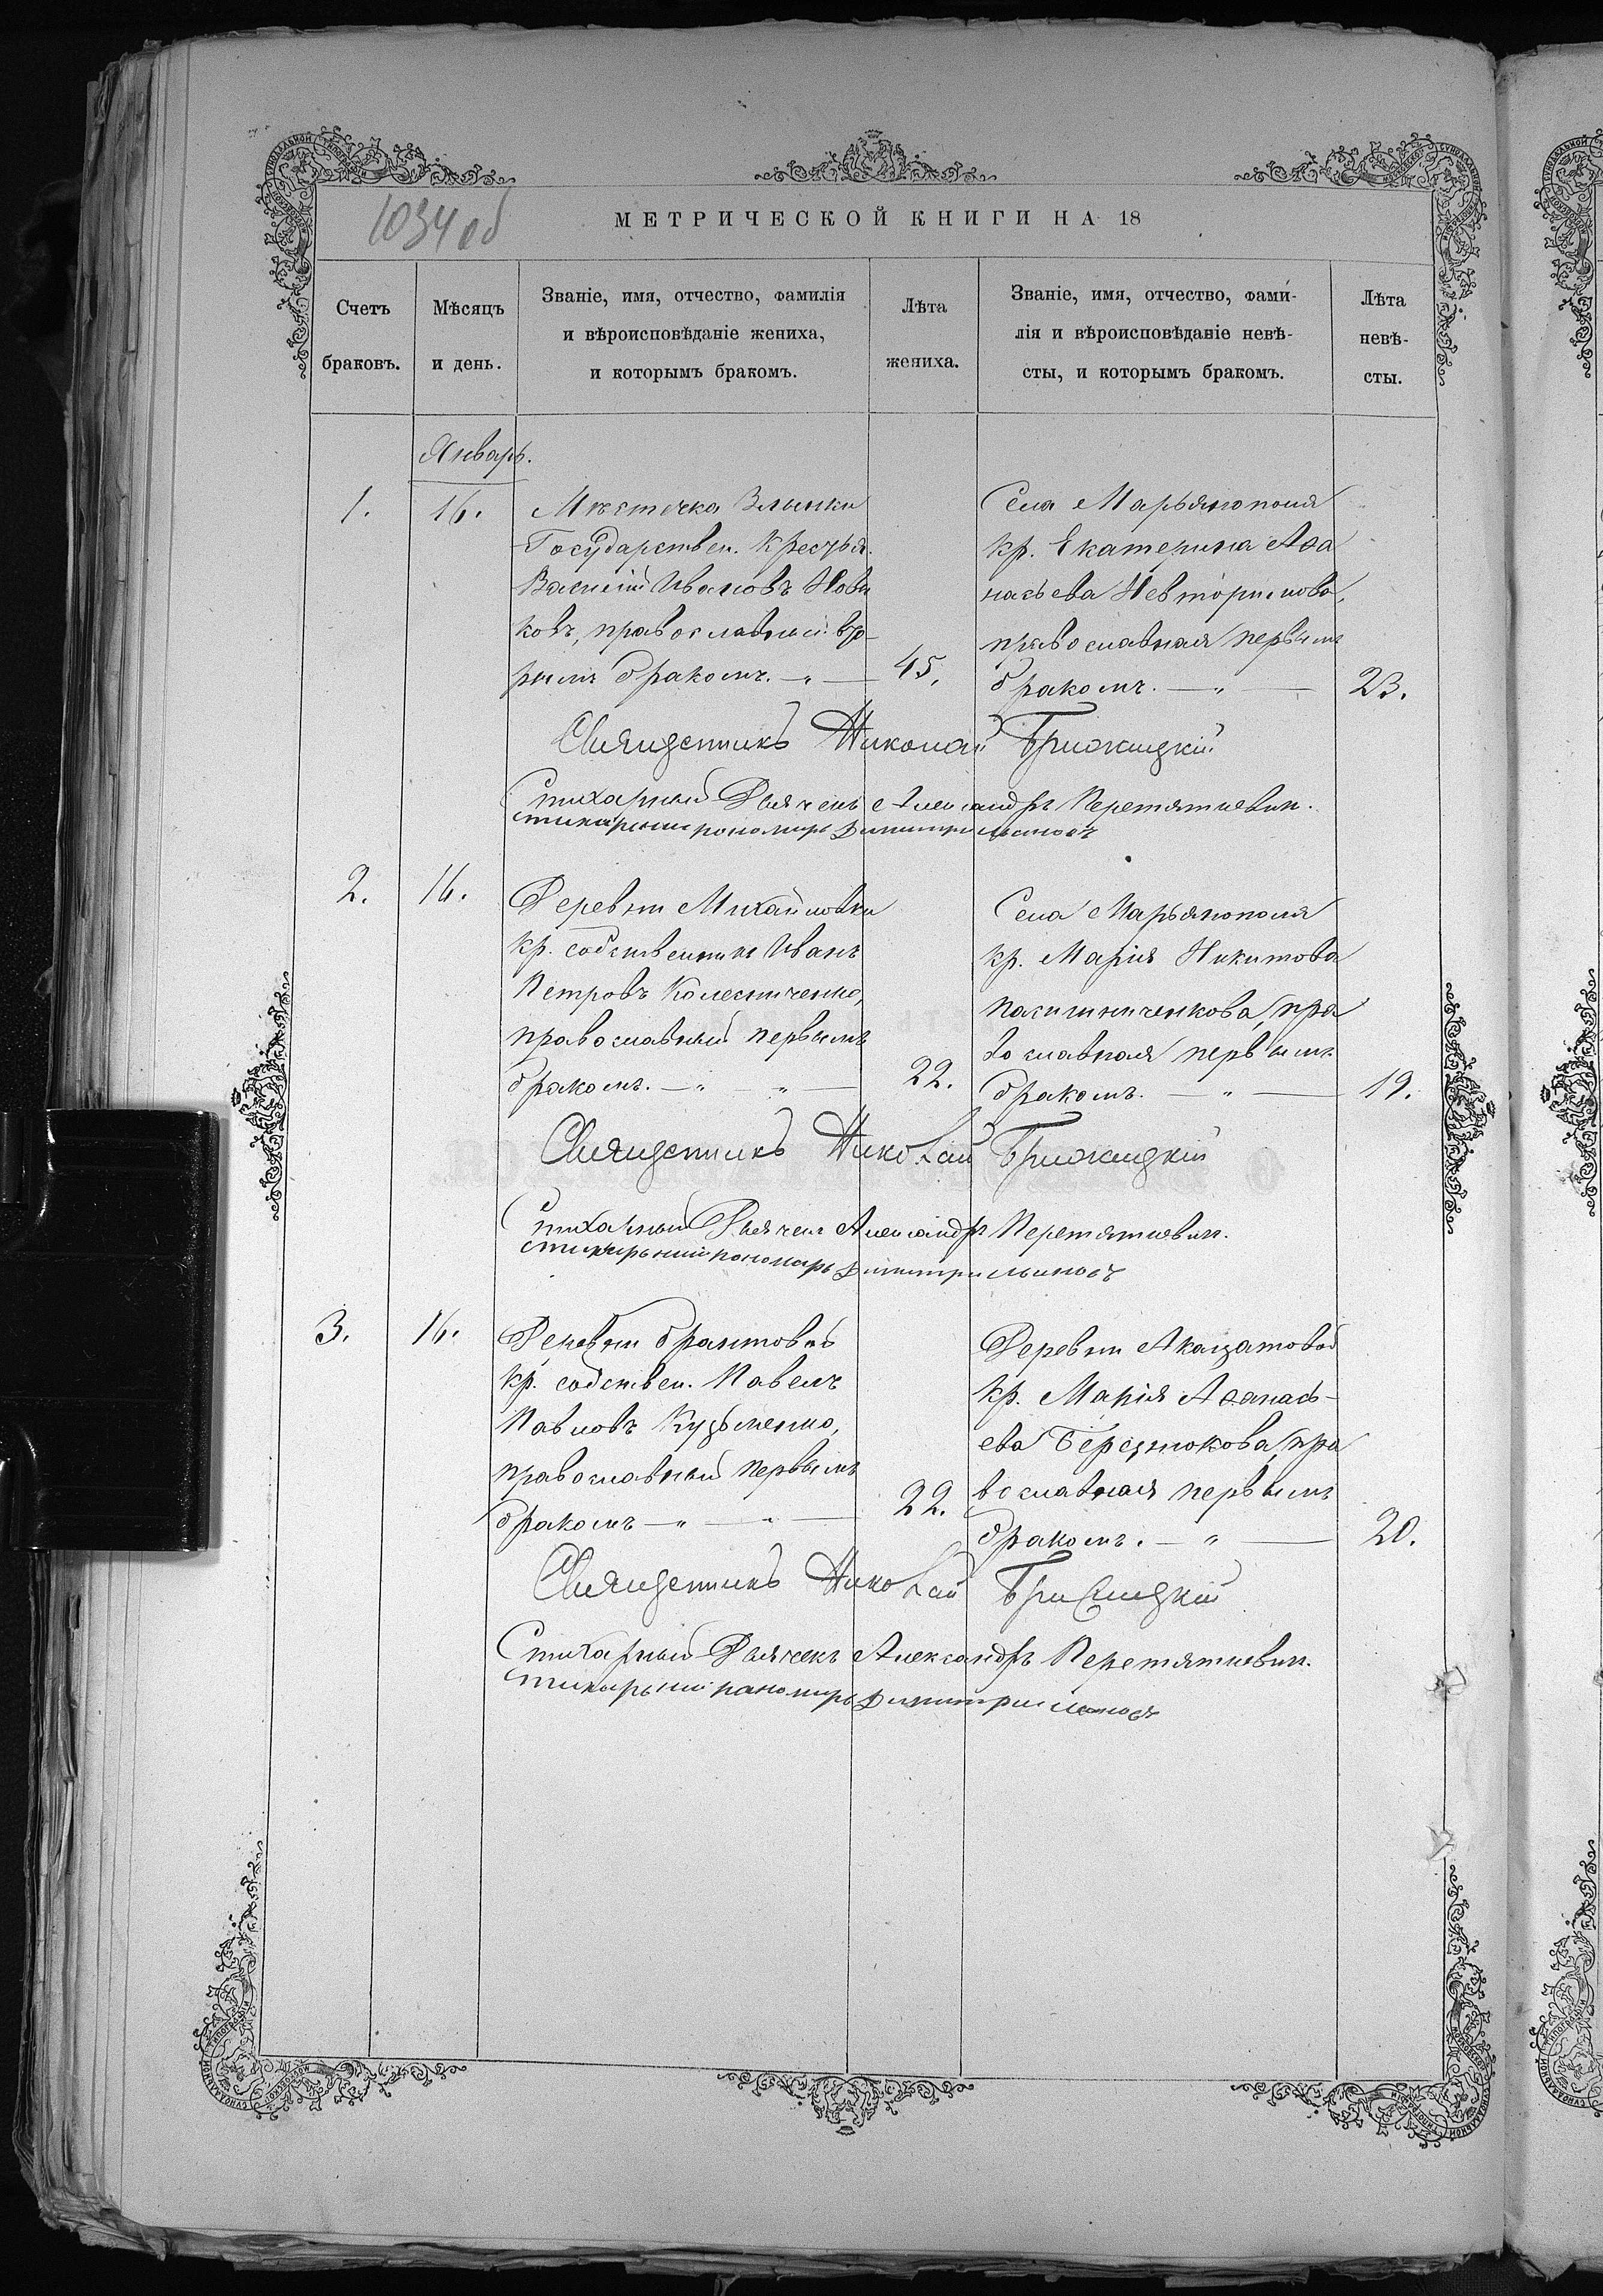 1034 об
МЕТРИЧЕСКОЙ КНИГИ НА 18
Счетъ браковъ.
Мѣсяцъ и день.
Званіе, имя, отчество, фамилія
и вѣроисповѣданіе жениха,
и которымъ бракомъ.
Лѣта жениха.
Званіе, имя, отчество, фами-
лія и вѣроисповѣданіе невѣ-
сты, и которымъ бракомъ.
Лѣта невѣ-
сты.
Январь.
1.
16.
Мѣстечка Злынки
Государствен. Крестья.
Василій Ивановъ Нови
ковъ, православный вто-
рымъ бракомъ. — „ —
45.
Села Марьянополя
кр. Екатерина Аѳа
насьева Невторинова,
православная первымъ
бракомъ. — „ —
23.
Священникъ Николай Брижицкій
Стихарный Дьячекъ Александръ Перетяткевич.
Стихарный пономарь Димитрій
2.
16.
Деревни Михайловки
кр. собственникъ Иванъ
Петровъ Колесниченко,
православный первымъ
бракомъ. — „ — „ —
22.
Села Марьянополя
кр. Марія Никитова
Пасишниченкова, пра
вославная первымъ
бракомъ. — „ —
19.
Священникъ Николай Брижицкій
Стихарный Дьячекъ Александръ Перетяткевич.
Стихарный пономарь Димитрій
3.
16.
Деревни Брантовой
кр. собствен. Павелъ
Павловъ Кузьменко,
православный первымъ
бракомъ — „ — „ —
22.
Деревни Акацатовой
кр. Марія Аѳанась-
ева Березнюкова, пра
вославная первымъ
бракомъ. — „ —
20.
Священникъ Николай Брижицкій
Стихарный Дьячекъ Александръ Перетяткевич.
Стихарный пономарь Димитрій